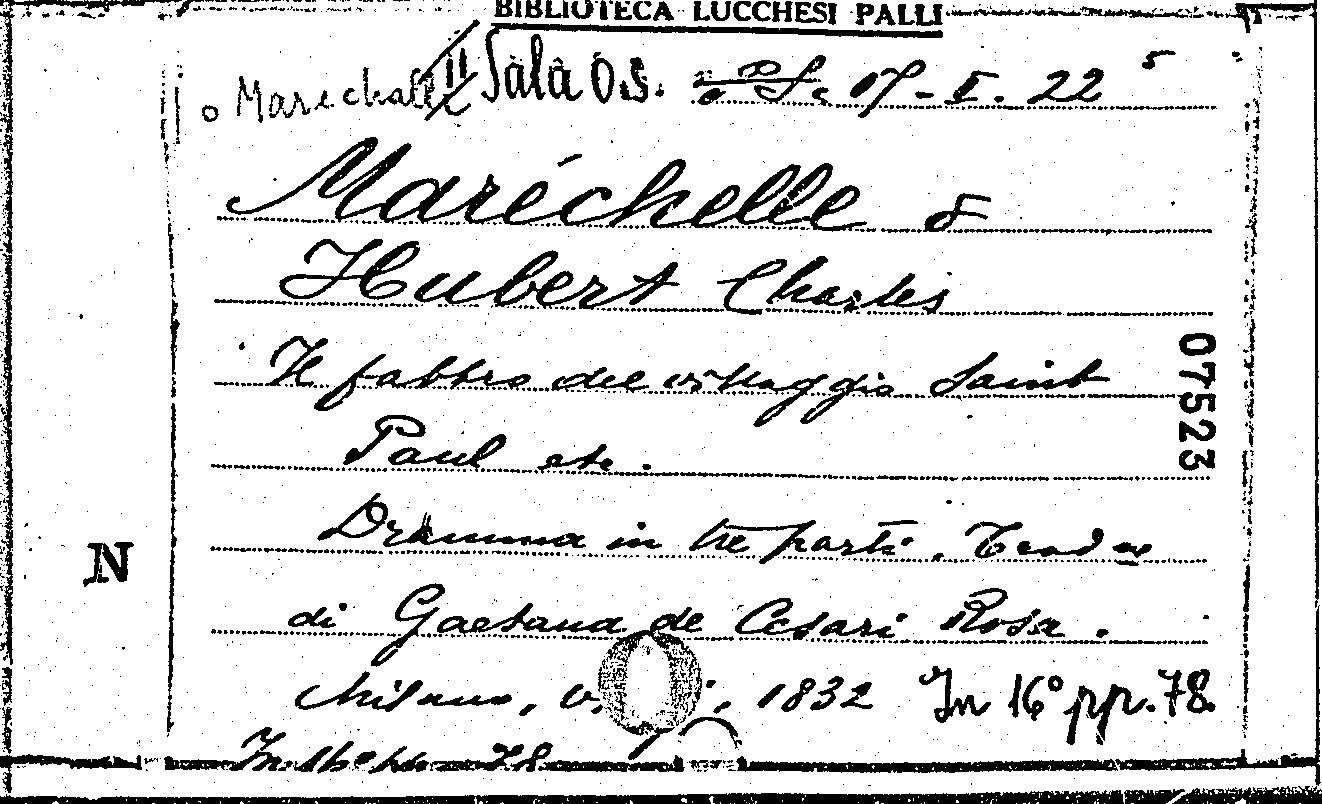 BIBLIOTECA LUCCHESI PALLI
o Maréchalle Sala O.S. 07-I. 22 5
Maréchelle &
Hubert Charles
Il fabbro del villaggio Saint
Paul etc.
Dramma in tre parti. Trad ne
di Gaetana de Cesari Rosa.
Milano, 1832 In 16° pp. 78.
In 16° pp. 78
07523
N